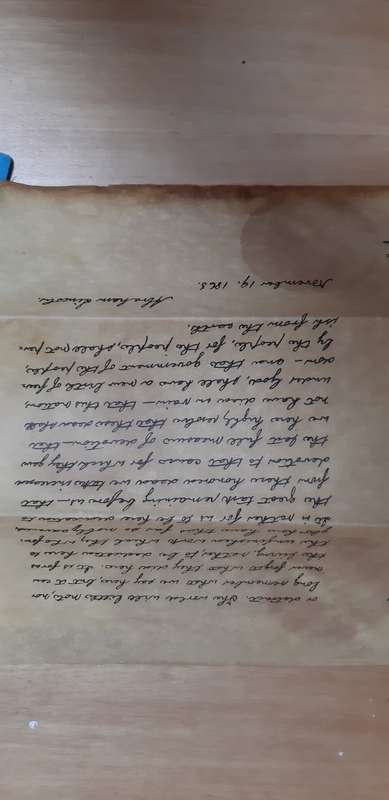 or detract. The world will little note, nor
long remember what we say here, but it can
never forget what they did here. It is for us
the living, rather, to be dedicated here to
the unfinished work which they who fou
have thus far so nobly
It is rather for us to be here dedicated to
the great task remaining before us — that
from these honored dead we take increased
devotion to that cause for which they gave
the last full measure of devotion — that
we here highly resolve that these dead shall
not have died in vain — that this nation,
under God, shall have a new birth of free-
dom — and that government of the people,
by the people, for the people, shall not per-
ish from the earth.
Abraham Lincoln.
November 19. 1863.